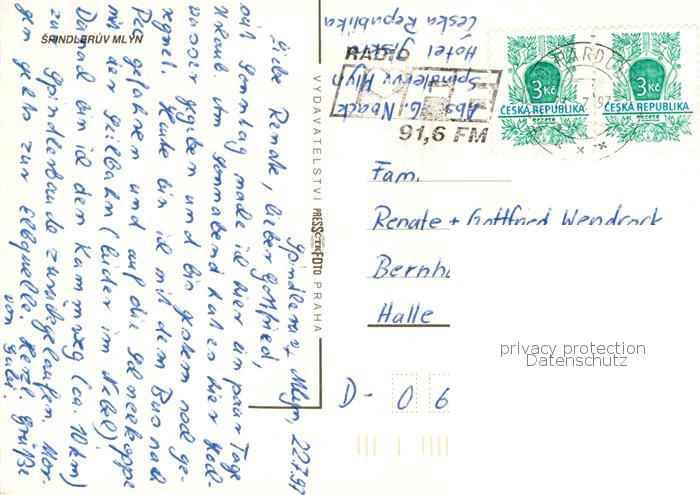 ŠPINDLERŮV MLÝN
Spindleruv Mlyn, 22.7.97
Liebe Renate, lieber Gottfried,
seit Sonntag mache ich hier ein paar Tage
Urlaub. Am Sonnabend hat es hier Hoch-
wasser gegeben und bis gestern noch ge-
regnet. Heute bin ich mit dem Bus nach
Pec gefahren und auf die Schneekoppe
mit der Seilbahn (leider im Nebel)
Danach bin ich den Kammweg (ca. 10 km)
zur Spindlerbaude zurückgelaufen. Mor-
gen geht's zur Elbquelle. Herzl. Grüße
von
VYDAVATELSTVÍ PRESSFOTO PRAHA
Abs. G.
Hotel
Spindleruv Mlyn
Česka Republika
RADIO
91,6 FM
PARDUB
3 Kč
ČESKÁ REPUBLIKA
3 Kč
ČESKÁ REPUBLIKA
Fam.
Renate + Gottfried Wendrock
Bernh
Halle
D- 0 6
privacy protection
Datenschutz